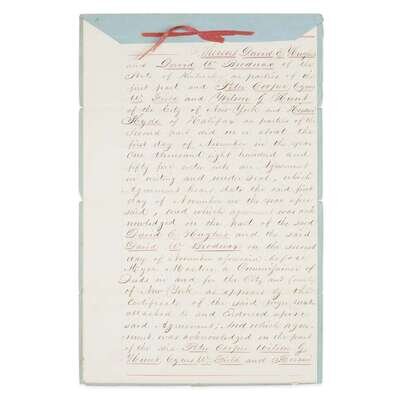 Whereas David E. Hughes
and David W. Brodnax of the
State of Kentucky as parties of the
first part and Peter Cooper, Cyrus
W. Field and Wilson G. Hunt
of the City of New York and
Hyde of Halifax as parties of the
second part did on or about the
first day of November in the year
One thousand eight hundred and
fifty five enter into an Agreement
in writing and under seal, which
Agreement bears date the said first
day of November in the year afore
said, and which agreement was ack
nowledged on the part of the said
David E. Hughes and the said
David W. Brodnax on the second
day of November aforesaid before
a Commissioner of
Deeds in and for the City and County
of New York as appears by the
Certificate of the said
attached to and Endorsed upon
said Agreement; And which agree
ment was acknowledged on the part
of the said Peter Cooper Wilson G.
Hunt, Cyrus W. Field and